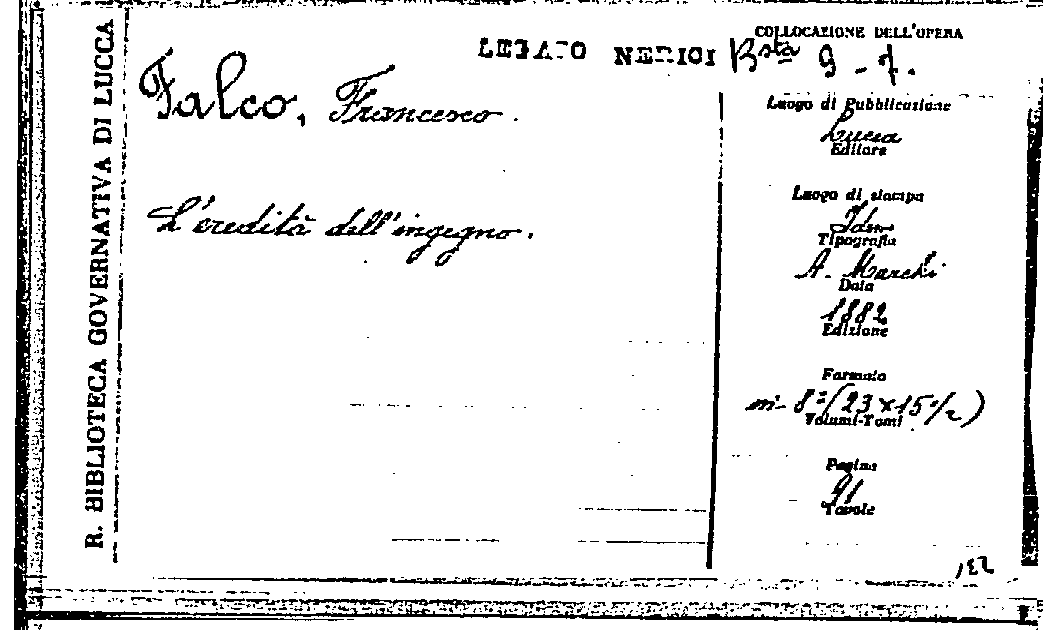 R. BIBLIOTECA GOVERNATIVA DI LUCCA
LEGATO NERICI
COLLOCAZIONE DELL'OPERA
Bsta 9 - 7.
Falco, Francesco.
L'eredità dell'ingegno.
Luogo di Pubblicazione
Lucca
Editore
Luogo di stampa
Idm
Tipografia
A. Marchi
Data
1882
Edizione
Formato
in- 8º (23 x 15 1/2)
Volumi-Tomi
Pagine
91
Tavole